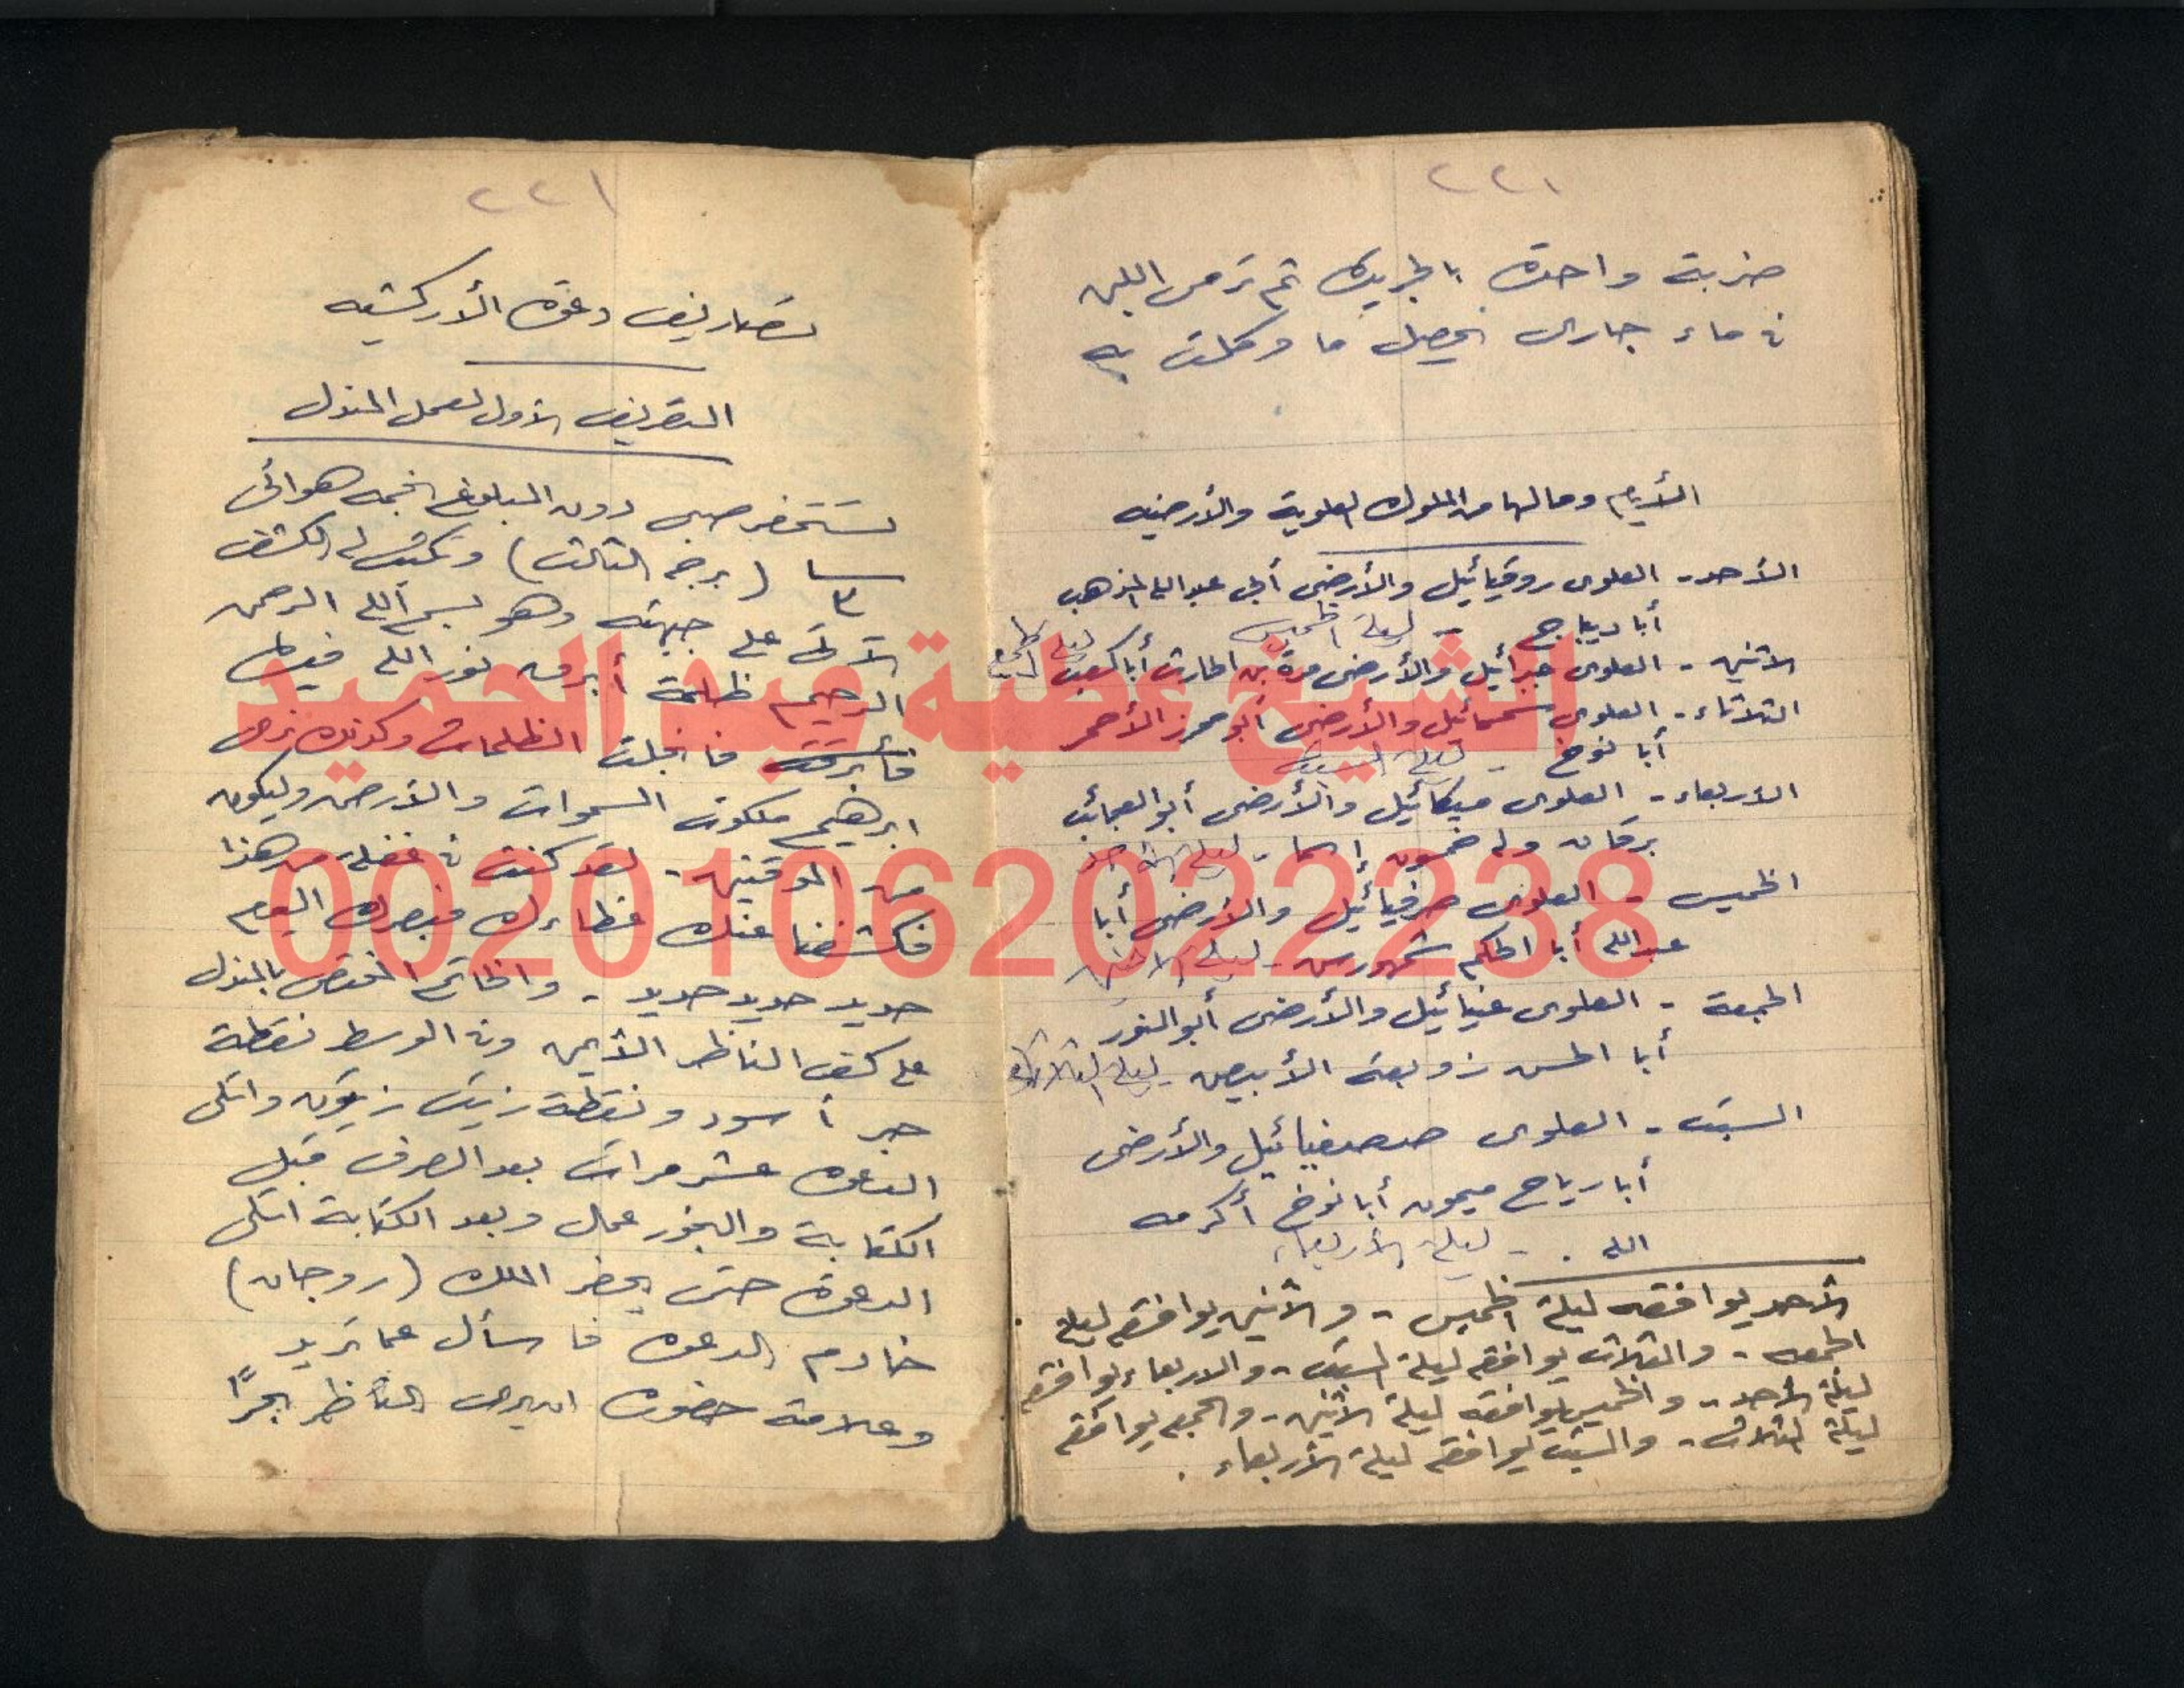 ٢٢١
ضربة واحدة بالجريدة ثم ترمى اللبن
فى ماء جارى يحصل ما وكلت به
الأيام ومالها من الملوك العلوية والأرضيه
الأحد - العلوى روقيائيل والأرضى أبى عبدالله المذهب
أبا ديباج - ليلة الخميس
الاثنين - العلوى جبرائيل والأرضى مرة بن الحارث أبا ليلة الجمعه
الثلاثاء - العلوى سمسمائيل والأرضى أبو محرز الأحمر
أبا نوخ - ليلة السبت
الاربعاء - العلوى ميكائيل والأرضى أبو العجائب
برقان وله خمسون إسما - ليلة الاحد
الخميس - العلوى صرفيائيل والأرضى أبا
عبدالله أبا الحكم شمهورس - ليلة الاثنين
الجمعة - العلوى عنيائيل والأرضى أبو النور
أبا الحسن زوبعة الأبيض - ليلة الثلاثاء
السبت - العلوى والأرضى
أبا رياح ميمون أبا نوخ أكرمه
الله . - ليلة الأربعاء
الأحد يوافقه ليلة الخميس - والأثنين يوافقه ليلة
الجمعه - والثلاث يوافقه ليلة السبت - والاربعاء يوافقه
ليلة الأحد - والخميس يوافقه ليلة الاثنين - والجمعه يوافقه
ليلة الثلاث - والسبت يوافقه ليلة الأربعاء .
٢٢١
تصاريف دعوة الأركشيه
التصريف الأول لعمل المندل
تستحضر صبى دون البلوغ نجمه هوائى
٣ (برجه الثالث) وتكتب له الكشف
الآتى على جبهته وهو بسم الله الرحمن
الرحيم ظلمة أبرقه نور الله فيها
فأبرقت فانجلت الظلمات وكذلك نرى
ابرهيم ملكوت السموات والأرض وليكون
من الموقنين - لقد كنت فى غفلة من هذا
فكشفنا عنك غطاءك فبصرك اليوم
حديد حديد حديد - والخاتم المختص بالمندل
على كف الناظر الأيمن وفى الوسط نقطة
حبر أسود ونقطة زيت زيتون واتلى
الدعوه عشر مرات بعد الصرف قبل
الكتابة والبخور عمال وبعد الكتابة اتلى
الدعوة حتى يحضر الملك (روجان)
خادم الدعوه فاسأل عما تريد
وعلامة حضوره ان يرى الناظر بحرًا
الشيخ عطية عبد الحميد
00201062022238